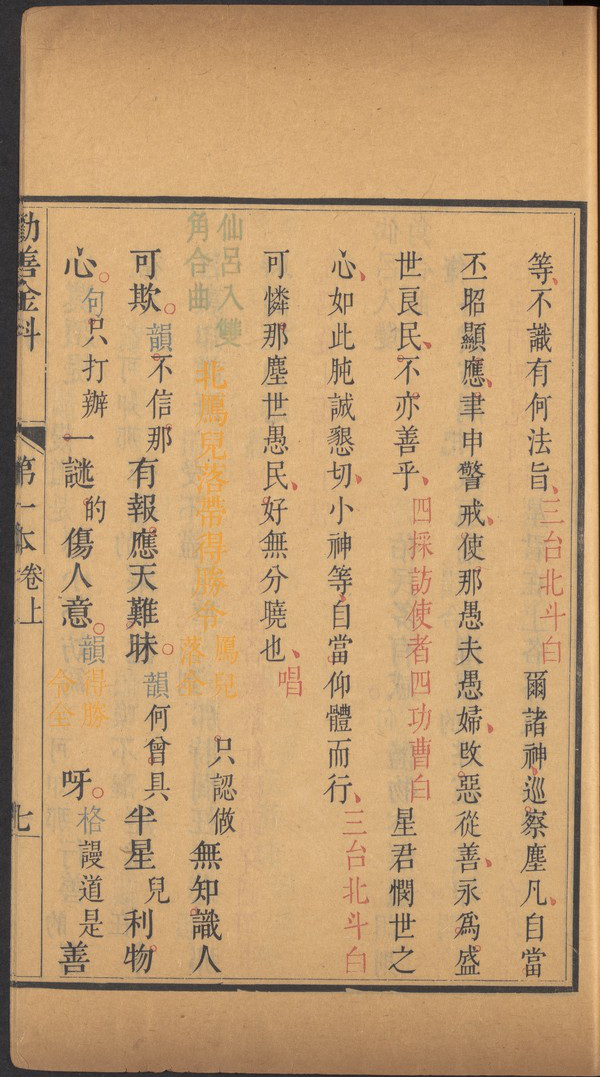 等不識有何法旨三台北斗白爾諸神巡察塵凡自當
丕昭顯應聿申警戒使那愚夫愚婦改惡從善永爲盛
世良民不亦善乎四採訪使者四功曹白星君憫世之
心如此肫誠懇切小神等自當仰體而行三台北斗白
可憐那塵世愚民好無分曉也唱
仙呂入雙
角合曲
北鴈兒落帶得勝令
鴈兒
落全
只認做無知識人
可欺韻不信那有報應天難昧韻何曾具半星兒利物
心句只打辦一謎的傷人意韻
得勝
令全
呀格謾道是善
勸善金科
第一本卷上
七